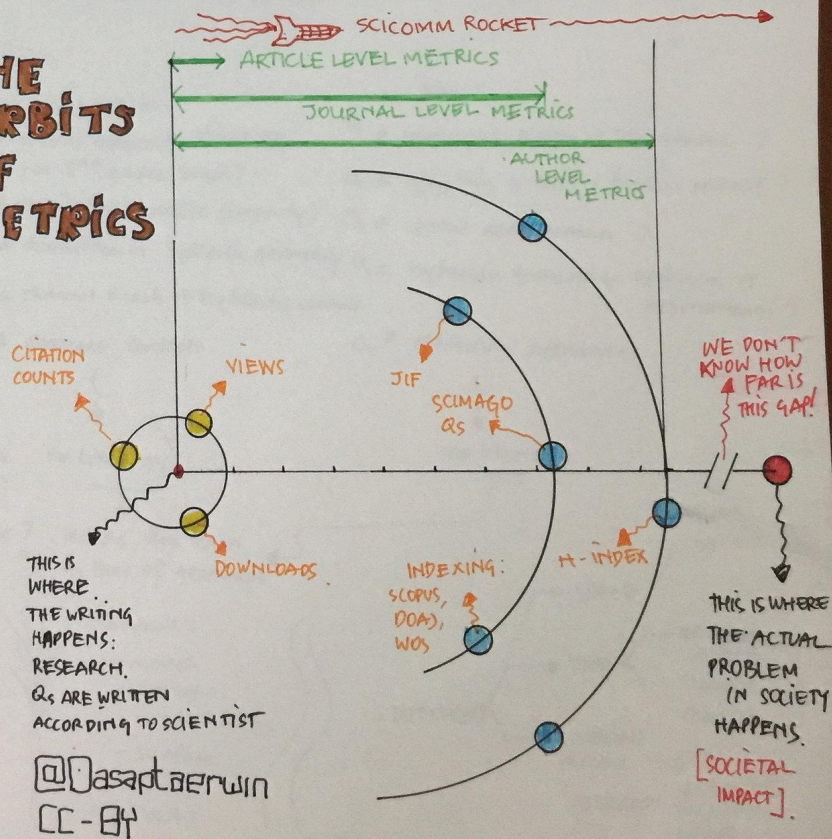 SCICOMM ROCKET
ARTICLE LEVEL METRICS
JOURNAL LEVEL METRICS
AUTHOR
LEVEL
METRICS
HE
RBITS
F
ETRICS
CITATION
COUNTS
VIEWS
DOWNLOADS
JIF
SCIMAGO
QS
INDEXING:
SCOPUS,
DOAJ,
WOS
H-INDEX
WE DON'T
KNOW HOW
FAR IS
THIS GAP!
THIS IS
WHERE
THE WRITING
HAPPENS:
RESEARCH.
QS ARE WRITTEN
ACCORDING TO SCIENTIST
THIS IS WHERE
THE ACTUAL
PROBLEM
IN SOCIETY
HAPPENS.
[SOCIETAL
IMPACT].
@Dasaptaerwin
CC-BY